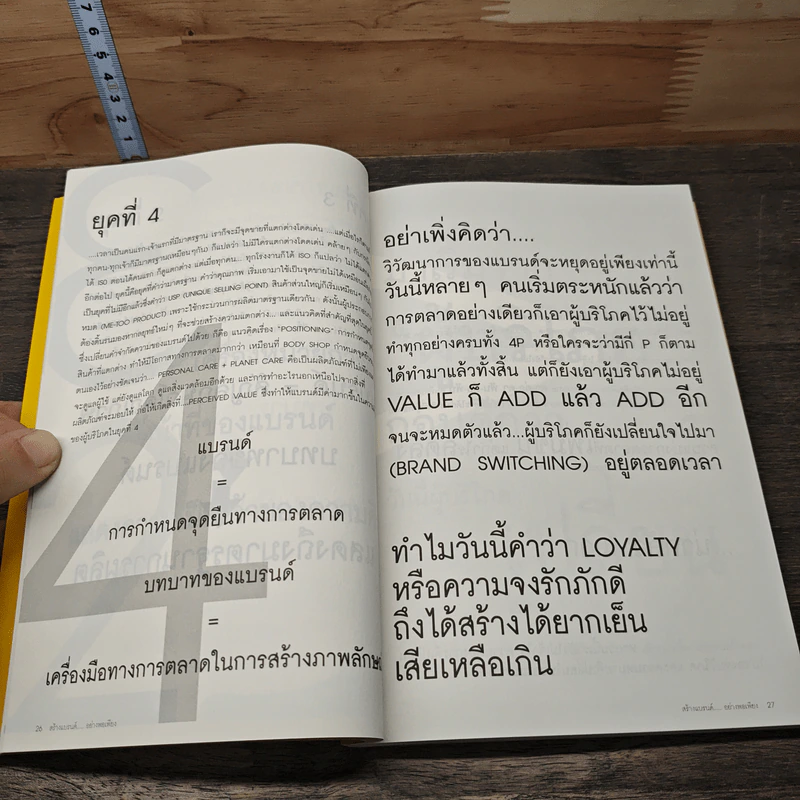 ยุคที่ 4
....เวลาเป็นคนแรก-เจ้าแรกที่มีมาตรฐาน เราก็จะมีจุดขายที่แตกต่างโดดเด่น ....แต่เมื่อใดที่
ทุกคน-ทุกเจ้าก็มีมาตรฐาน(เหมือนๆกัน) ก็แปลว่า ไม่มีใครแตกต่างโดดเด่น คล้ายๆ กับการ
ได้ ISO ตอนได้คนแรก ก็ดูแตกต่าง แต่เมื่อทุกคน... ทุกโรงงานก็ได้ ISO ก็แปลว่า ไม่ได้แตก
อีกต่อไป ยุคนี้คือยุคที่คำว่ามาตรฐาน คำว่าคุณภาพ เริ่มเอามาใช้เป็นจุดขายไม่ได้เหมือน
เป็นยุคที่ไม่มีอีกแล้วซึ่งคำว่า USP (UNIQUE SELLING POINT) สินค้าส่วนใหญ่ก็เริ่มเหมือนๆ กัน
หมด (ME-TOO PRODUCT) เพราะใช้กระบวนการผลิตมาตรฐานเดียวกัน ดังนั้นผู้ประกอบ
ต้องดิ้นรนมองหากลยุทธ์ใหม่ๆ ที่จะช่วยสร้างความแตกต่าง... และแนวคิดที่สำคัญที่สุดในยุค
ซึ่งเปลี่ยนคำจำกัดความของแบรนด์ไปด้วย ก็คือ แนวคิดเรื่อง "POSITIONING" การกำหนด
สินค้าที่แตกต่าง ทำให้มีโอกาสทางการตลาดมากกว่า เหมือนที่ BODY SHOP กำหนดจุดยืน
ตนเองไว้อย่างชัดเจนว่า... PERSONAL CARE + PLANET CARE คือเป็นผลิตภัณฑ์ที่ไม่เพียง
จะดูแลผู้ใช้ แต่ยังดูแลโลก ดูแลสิ่งแวดล้อมอีกด้วย และการทำอะไรนอกเหนือไปจากสิ่งที่
ผลิตภัณฑ์จะมอบให้ ก่อให้เกิดสิ่งที่....PERCEIVED VALUE ซึ่งทำให้แบรนด์มีค่ามากขึ้นใน
ของผู้บริโภคในยุคที่ 4
4
แบรนด์
=
การกำหนดจุดยืนทางการตลาด
บทบาทของแบรนด์
=
เครื่องมือทางการตลาดในการสร้างภาพลักษ
26 สร้างแบรนด์.... อย่างพอเพียง
อย่าเพิ่งคิดว่า....
วิวัฒนาการของแบรนด์จะหยุดอยู่เพียงเท่านี้
วันนี้หลายๆ คนเริ่มตระหนักแล้วว่า
การตลาดอย่างเดียวก็เอาผู้บริโภคไว้ไม่อยู่
ทำทุกอย่างครบทั้ง 4P หรือใครจะว่ามีกี่ P ก็ตาม
ได้ทำมาแล้วทั้งสิ้น แต่ก็ยังเอาผู้บริโภคไม่อยู่
VALUE ก็ ADD แล้ว ADD อีก
จนจะหมดตัวแล้ว...ผู้บริโภคก็ยังเปลี่ยนใจไปมา
(BRAND SWITCHING) อยู่ตลอดเวลา
ทำไมวันนี้คำว่า LOYALTY
หรือความจงรักภักดี
ถึงได้สร้างได้ยากเย็น
เสียเหลือเกิน
สร้างแบรนด์.... อย่างพอเพียง 27
7
6
5
4
3
2
1